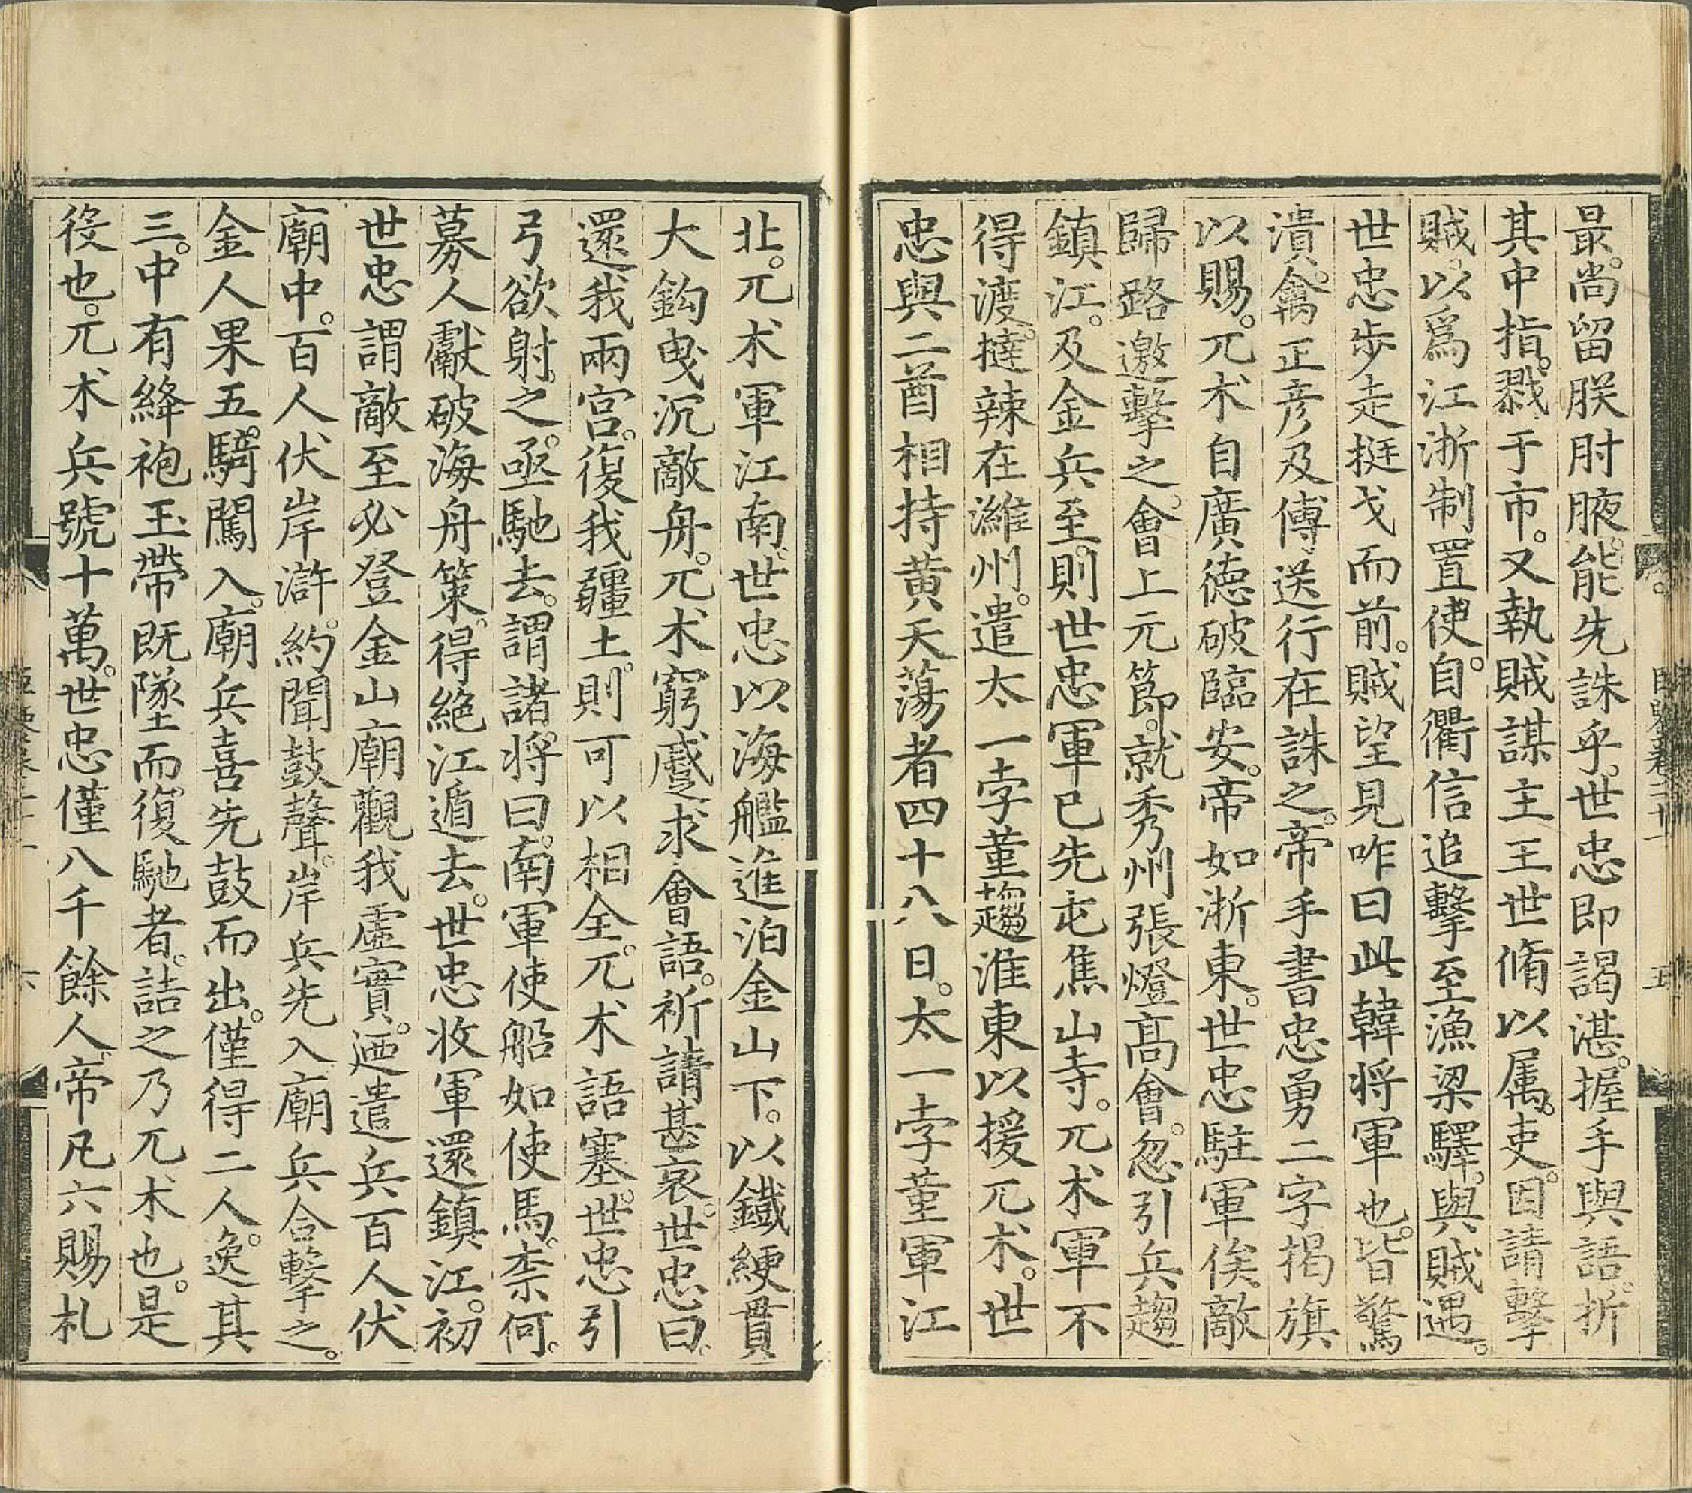 最。尚留朕肘腋。能先誅乎。世忠即謁湛。握手與語。折
其中指。戮于市。又執賊謀主王世脩以属。吏。因請擊
賊。以爲江浙制置使。自衢信追擊至漁梁驛。與賊遇。
世忠步走挺戈而前。賊望見咋曰此韓将軍也。皆驚
潰。禽正彦及傅送行在誅之。帝手書忠勇二字揭旗
以賜。兀朮自廣德破臨安。帝如浙東。世忠駐軍俟敵
歸路邀擊之。會上元節。就秀州張燈髙會。忽引兵趨
鎮江。及金兵至。則世忠軍已先屯焦山寺。兀朮軍不
得渡。撻辣在濰州。遣太一孛堇趨淮東以援兀朮。世
忠與二酋相持黄天蕩者四十八日。太一孛堇軍江
北。兀朮軍江南。世忠以海艦進泊金山下。以鐵綆貫
大鈎曳沉敵舟。兀朮窮蹙求會語。祈請甚哀。世忠曰。
還我兩宫。復我疆土。則可以相全。兀朮語塞。世忠引
弓欲射。之。亟馳去。謂諸。將曰。南軍使船如使馬。柰何。
募人獻破海舟策。得絶江遁去。世忠收軍還鎮江。初
世忠謂敵至必登金山廟觀我虛實。迺遣兵百人伏
廟中。百人伏岸滸。約聞鼓聲。岸兵先入廟兵合擊之。
金人果五。騎闖入。廟兵喜先鼓而出。僅得二人。逸其
三。中有絳袍玉帶既墜而復馳者。詰之乃兀朮也。是
役也。兀朮兵號十萬。世忠僅八千餘人。帝凡六賜札